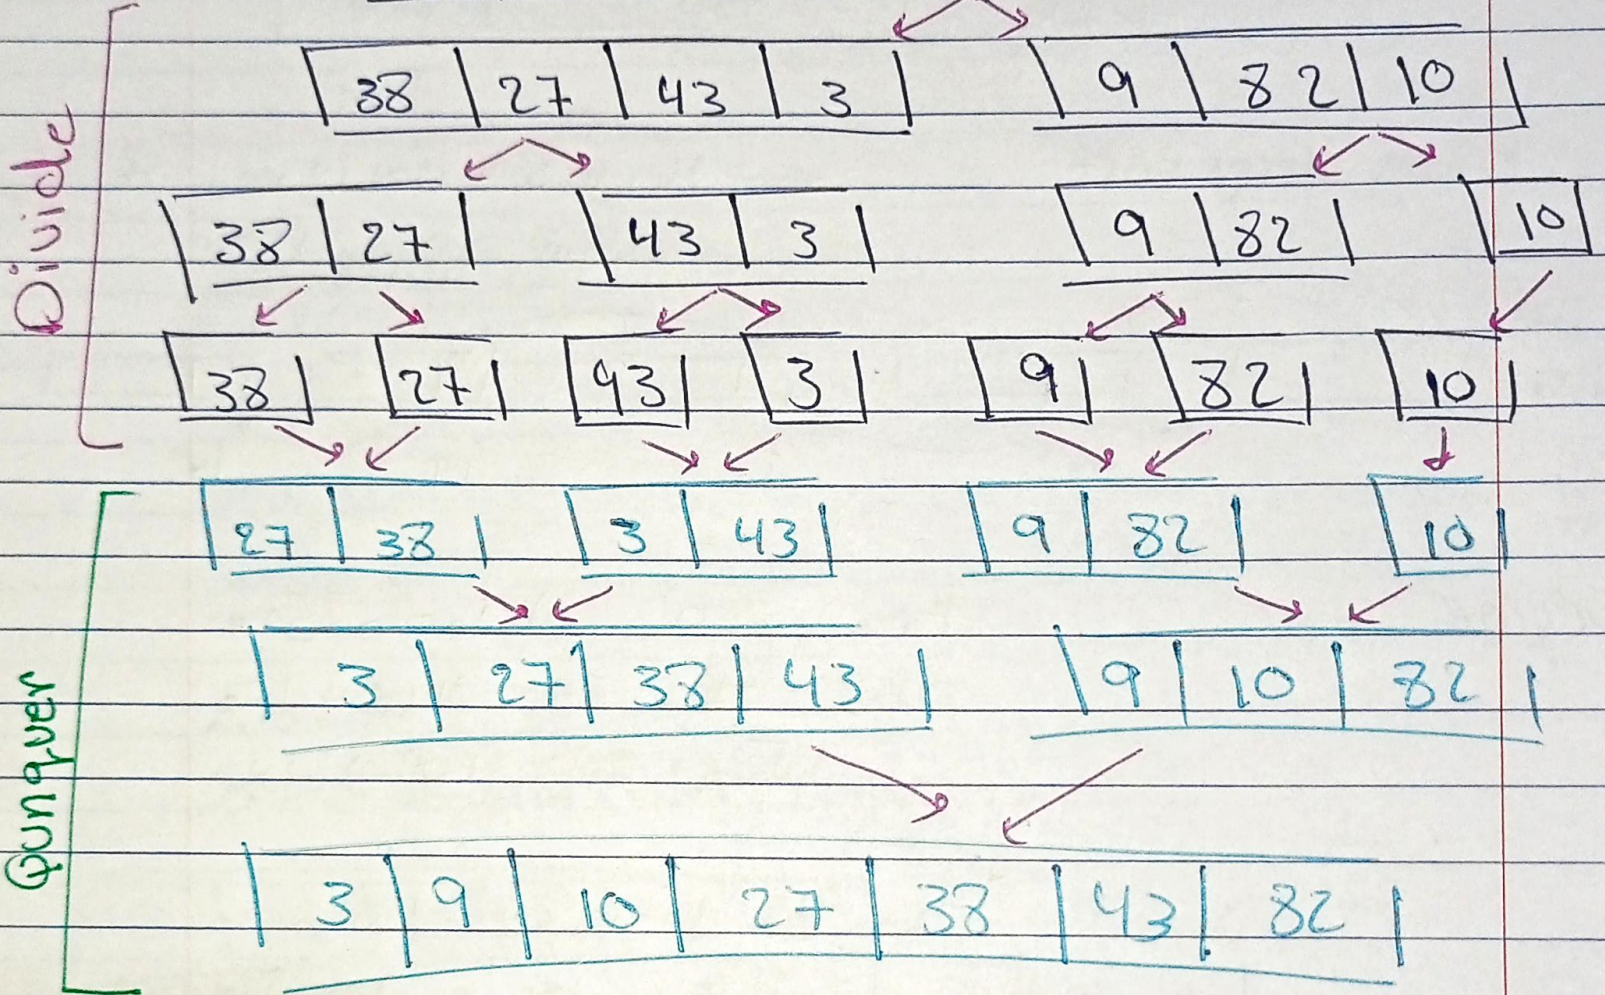 Divide
38 27 43 3 9 82 10
38 27 43 3 9 82 10
38 27 43 3 9 82 10
Qunquer
27 38 3 43 9 82 10
3 27 38 43 9 10 82
3 9 10 27 38 43 82